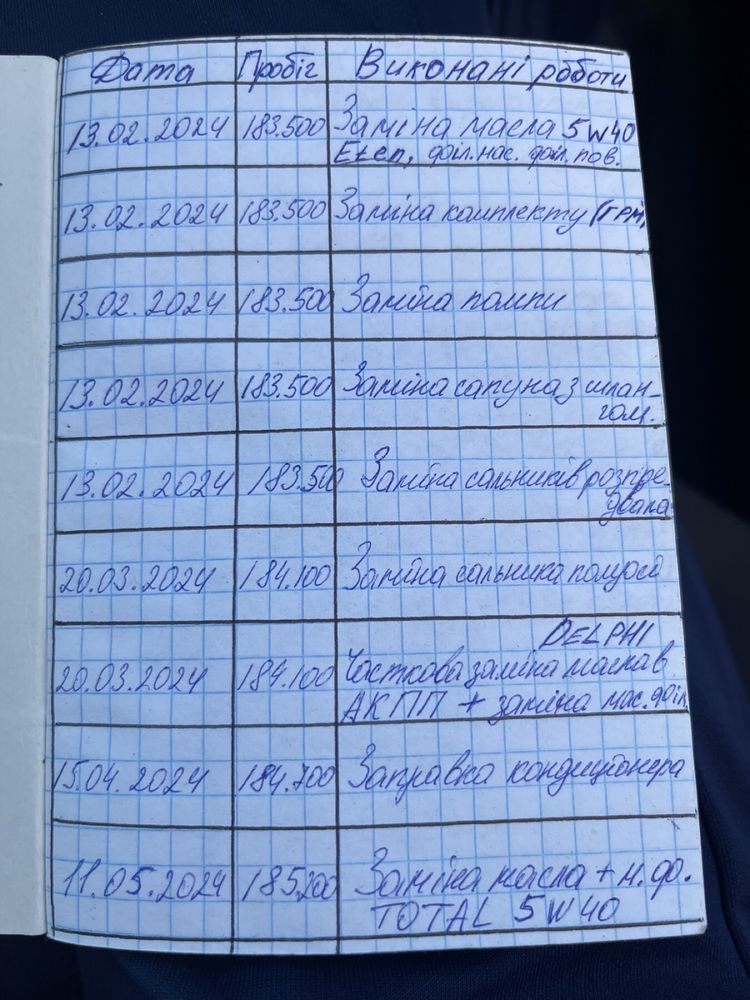 Дата Пробіг Виконані роботи
13.02.2024 183.500 Заміна масла 5W40
філ.мас. філ.пов.
13.02.2024 183.500 Заміна комплекту (ГРМ)
13.02.2024 183.500 Заміна помпи
13.02.2024 183.500 Заміна сапуна з шлан-
гом.
13.02.2024 183.500 Заміна сальників розпре-
двала
20.03.2024 184.100 Заміна сальника полуосі
DELPHI
20.03.2024 184.100 Часткова заміна масла в
АКПП + заміна мас. філ.
15.04.2024 184.700 Заправка кондиціонера
11.05.2024 185.200 Заміна масла + м. ф.
TOTAL 5W40